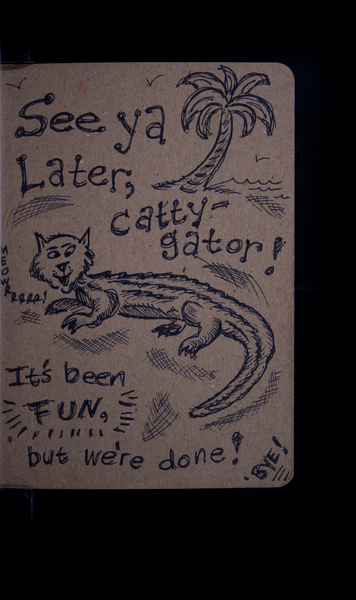 See ya
Later,
catty-
gator!
MEOWR
RRRR!
It's been
FUN,
but we're done!
BYE!